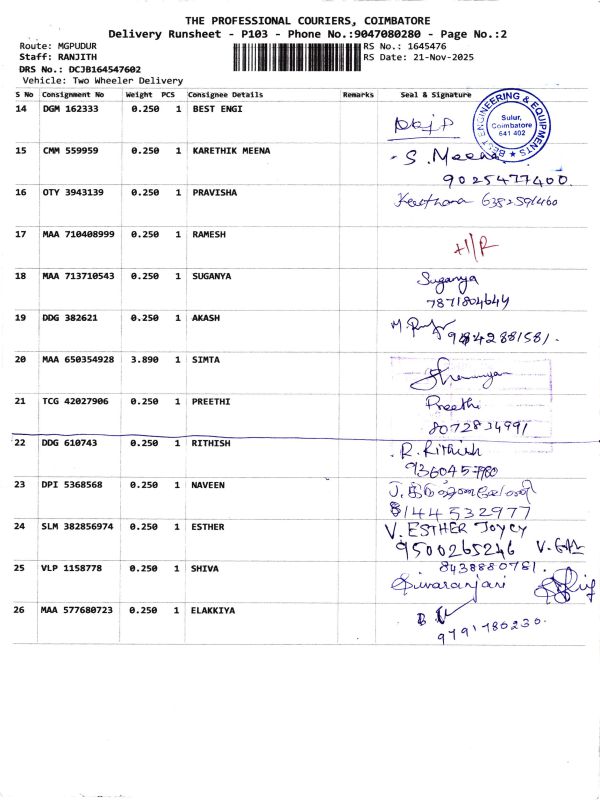 THE PROFESSIONAL COURIERS, COIMBATORE
Delivery Runsheet - P103 - Phone No.:9047080280 - Page No.:2
Route: MGPUDUR RS No.: 1645476
Staff: RANJITH RS Date: 21-Nov-2025
DRS No.: DCJB164547602
Vehicle: Two Wheeler Delivery
S No Consignment No Weight PCS Consignee Details Remarks Seal & Signature
14 DGM 162333 0.250 1 BEST ENGI
BEST ENGINEERING & EQUIPMENTS ★
Sulur,
Coimbatore
641 402
15 CMM 559959 0.250 1 KARETHIK MEENA
S. Meena
9025477400.
16 OTY 3943139 0.250 1 PRAVISHA
6382591460
17 MAA 710408999 0.250 1 RAMESH
18 MAA 713710543 0.250 1 SUGANYA Suganya
7871804644
19 DDG 382621 0.250 1 AKASH
20 MAA 650354928 3.890 1 SIMTA
21 TCG 42027906 0.250 1 PREETHI Preethi
8072834991
22 DDG 610743 0.250 1 RITHISH R. Rithish
9360457980
23 DPI 5368568 0.250 1 NAVEEN
8144532977
24 SLM 382856974 0.250 1 ESTHER V. ESTHER JOYCY
9500265246
25 VLP 1158778 0.250 1 SHIVA 8438880781.
Sivaranjani
26 MAA 577680723 0.250 1 ELAKKIYA
9791780230.